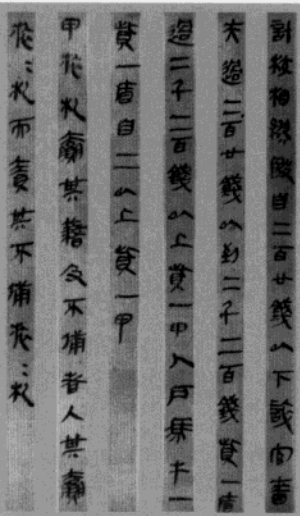 計校相繆殹自二百廿錢以下誶官嗇
夫過二百廿錢以到二千二百錢貲一盾
過二千二百錢以上貲一甲人戶馬牛一
貲一盾自二以上貲一甲
甲旅札贏其籍及不備者入其贏
旅=札而責其不備旅=札